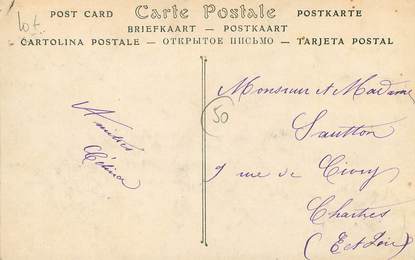 lot
POST CARD Carte Postale POSTKARTE
BRIEFKAART - POSTKAART
CARTOLINA POSTALE - ОТКРЫТОЕ ПИСЬМО - TARJETA POSTAL
Amitiés
Célina
50
Monsieur et Madame
Sautton
9 rue de Civry
Chartres
(E et Loir)